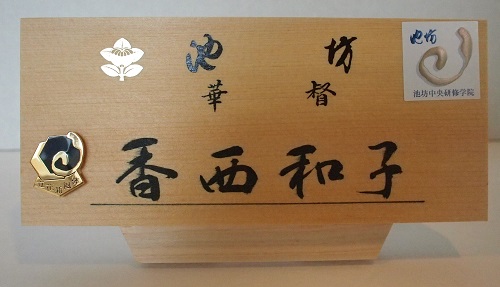 池坊
華督
香西和子
池坊
池坊中央研修学院